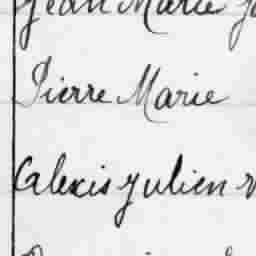 Jean Marie
Pierre Marie
Alexis Julien